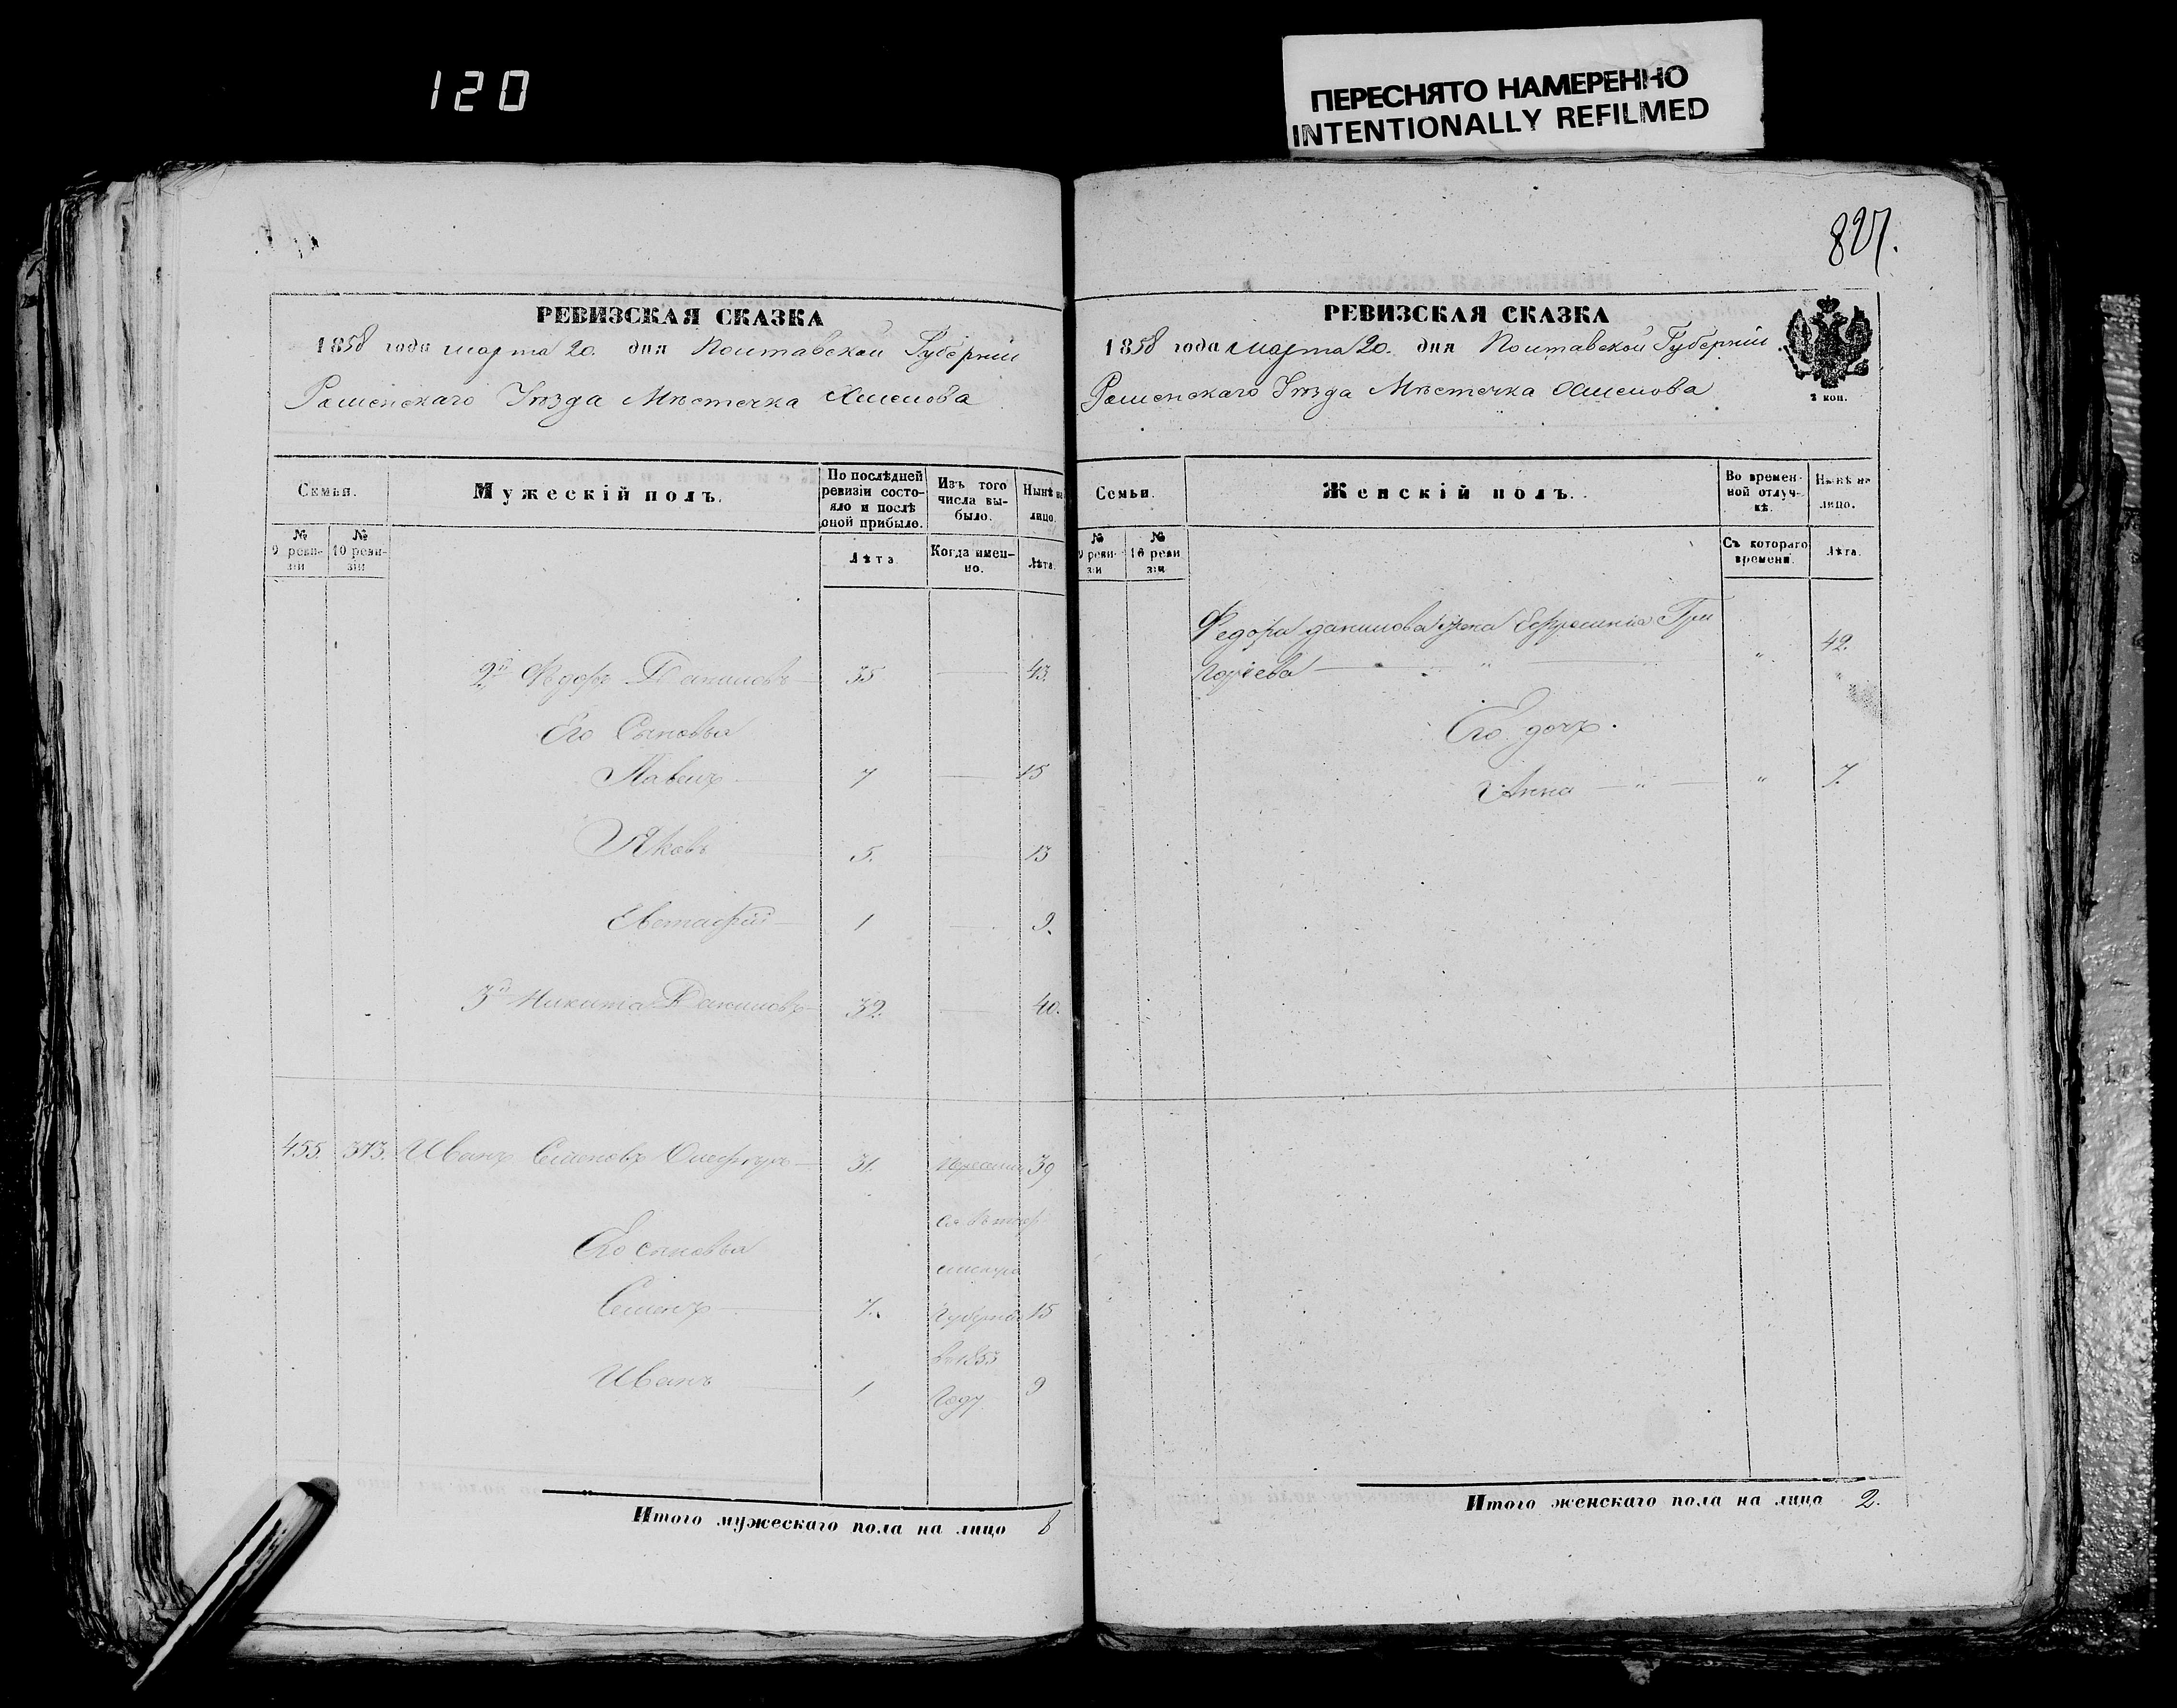 120
ПЕРЕСНЯТО НАМЕРЕННО
INTENTIONALLY REFILMED
827.
РЕВИЗСКАЯ СКАЗКА
1858 года марта 20. дня Полтавской Губерніи
Роменскаго Уѣзда Мѣстечка Хмелова
Семьи.
Мужескій полъ.
По послѣдней ревизіи состояло и послѣ оной прибыло.
Изъ того числа выбыло.
Нынѣ на лицо.
№ 9 ревизіи
№ 10 ревизіи
Лѣта.
Когда именно.
Лѣта.
2й Федоръ Даниловъ 35 43.
Его Сыновья
Павелъ 7 15
Яковъ 5. 13
Евстафій 1 9.
3й Никита Даниловъ 32. 40.
455. 373. Иванъ Семеновъ 31. 39
Его сыновья
Семенъ 7. Губернію 15
в 1853
Иванъ 1 Году. 9
Итого мужескаго пола на лицо
РЕВИЗСКАЯ СКАЗКА
1858 года марта 20. дня Полтавской Губерніи
Роменскаго Уѣзда Мѣстечка Хмелова
2 коп.
Семьи.
Женскій полъ.
Во временной отлучкѣ.
Нынѣ на лицо.
№ 9 ревизіи
№ 10 ревизіи
Съ котораго времени.
Лѣта.
Федора Данилова жена Ефросинія Гри
горіева " " 42.
Его дочь.
Анна " " 7.
Итого женскаго пола на лицо 2.